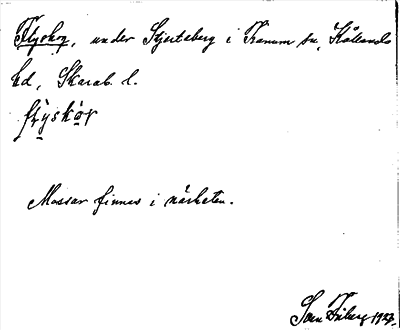 Flyskog, under Stjerteberg i Tranum sn, Kållands
hd, Skarab. l.
Mossar finnes i närheten.
Sven 1927.